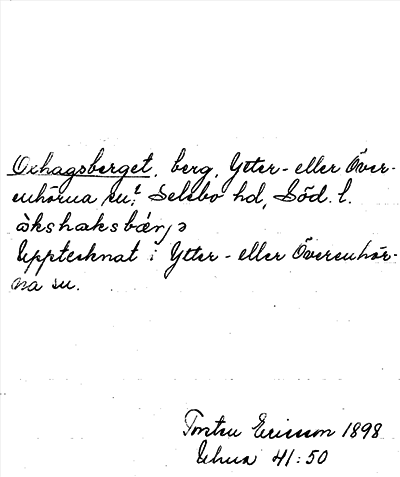 Oxhagsberget, berg, Ytter- eller Över-
enhörna sn, Selebo hd, Söd. l.
àkshaksbærjə
Upptecknat i Ytter- eller Överenhör-
na sn.
Torsten Ericsson 1898
41:50